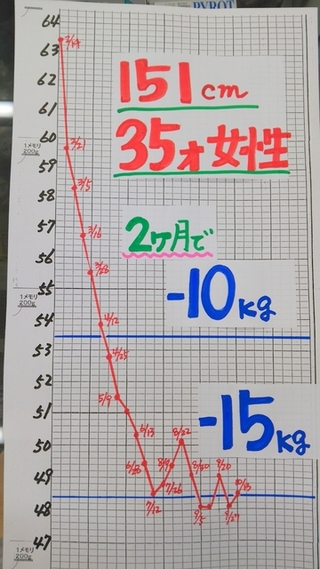 PYROT
64
63
62
61
60
59
58
57
56
55
54
53
52
51
50
49
48
47
1メモリ
200g
1メモリ
200g
1メモリ
151cm
35才女性
2ヶ月で
-10kg
-15kg
2/21
3/5
3/16
3/28
4/12
4/25
5/9
6/13
6/28
7/12
7/26
8/9
8/22
9/5
9/20
9/27
10/18